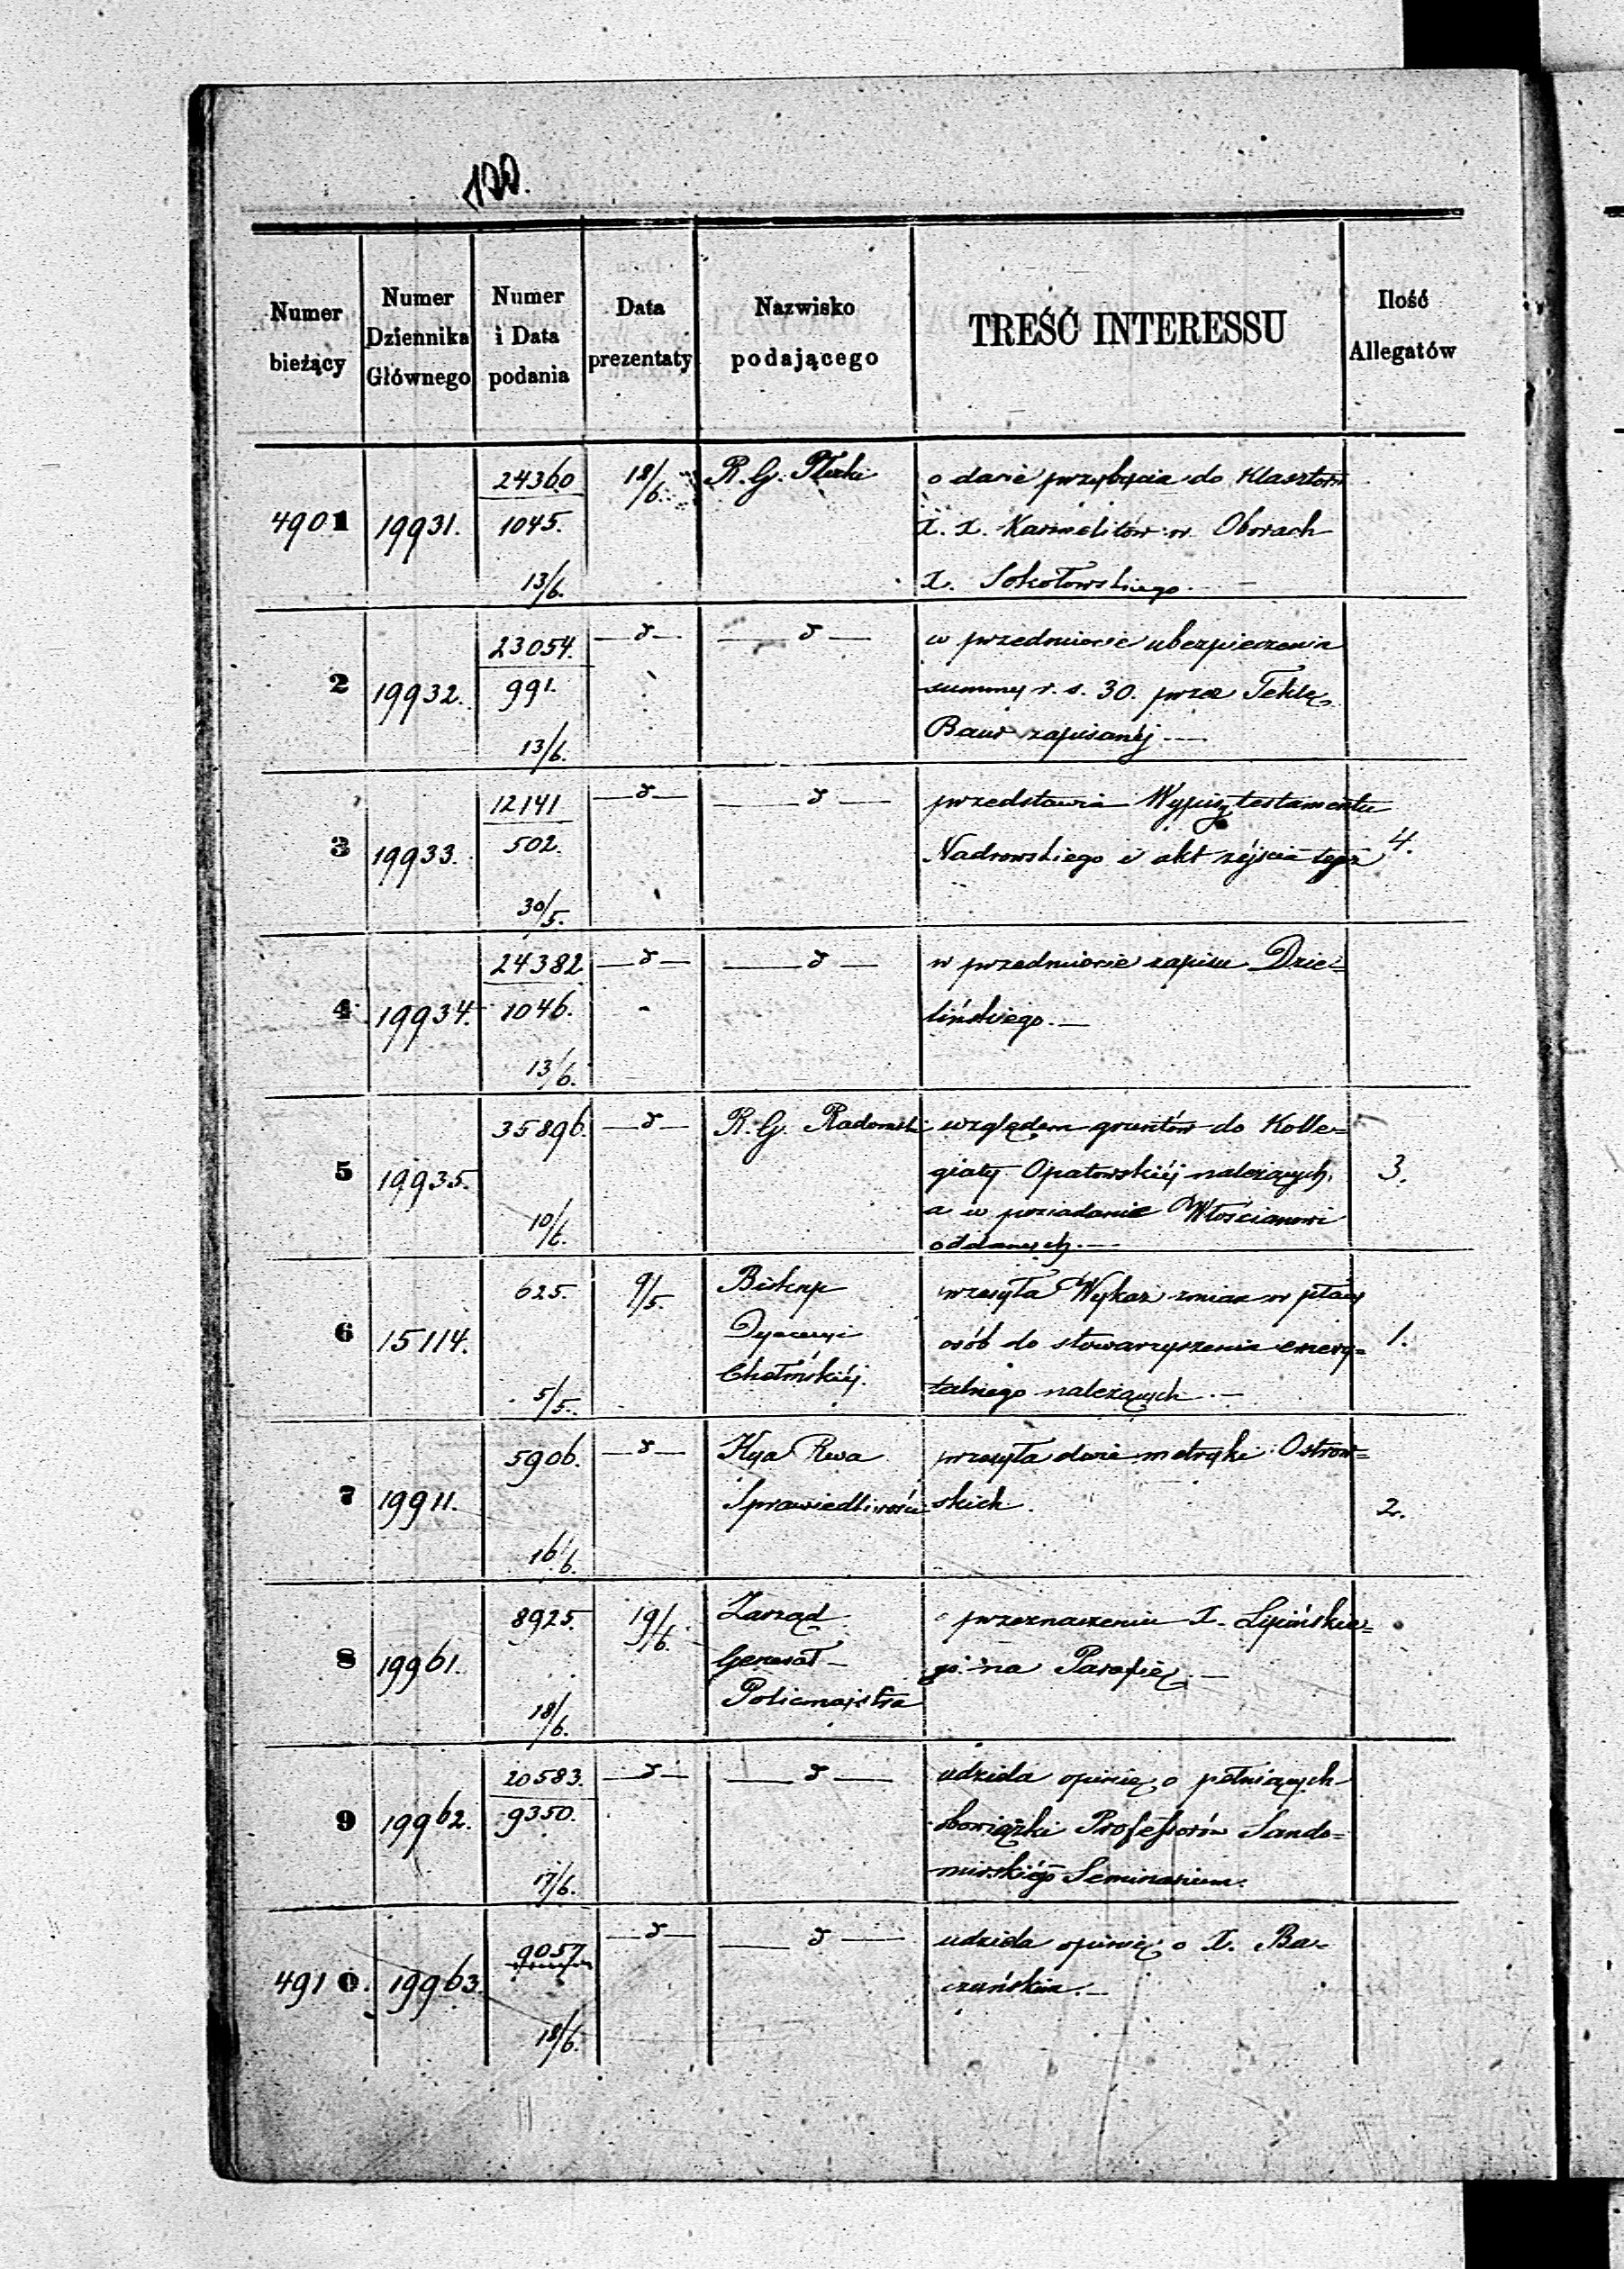 100.
Numer bieżący | Numer Dziennika Głównego | Numer i Data podania | Data prezentaty | Nazwisko podającego | TREŚĆ INTERESSU | Ilość Allegatów
4901 | 19931. | 24360 | 18/6. | R. G. Płocki | o dacie przybycia do Klasztoru
1045. | X. X. Karmelitów w Oborach
13/6. | X. Sokołowskiego. —
2 | 19932. | 23054. | — d — | — d — | w przedmiocie ubezpieczenia
991. | summy r. s. 30. przez Teklę
13/6. | Baur zapisanéj —
3 | 19933. | 12141 | — d — | — d — | przedstawia Wypis testamentu
502. | Nadrowskiego i akt zéjścia tegoż | 4.
30/5.
4 | 19934. | 24382 | — d — | — d — | w przedmiocie zapisu Dzie=
1046. | lińskiego. —
13/6.
5 | 19935. | 35896. | — d — | R. G. Radomski | względem gruntów do Kolle=
giaty Opatowskiéj należących, | 3.
10/6. | a w posiadanie Włościanowi
oddanych. —
6 | 15114. | 625. | 9/5. | Biskup | przesyła Wykaz zmian w płacy
Dyecezyi | osób do stowarzyszenia emery= | 1.
5/5. | Chełmskiéj. | talnego należących. —
7 | 19911. | 5906. | — d — | Kya Rwa | przesyła dwie metryki Ostrow=
Sprawiedliwości | skich. | 2.
16/6.
8 | 19961. | 8925. | 19/6. | Zarząd | o przeznaczeniu X. Lipińskie=
Generał — | go na Parafię. —
18/6. | Policmajstra
9 | 19962. | 20583. | — d — | — d — | udziela opinię o pełniących
9350. | obowiązki Professorów Sando=
17/6. | mirskiégo Seminarium.
4910. | 19963. | 9057 | — d — | — d — | udziela opinię o X. Ba=
18/6.